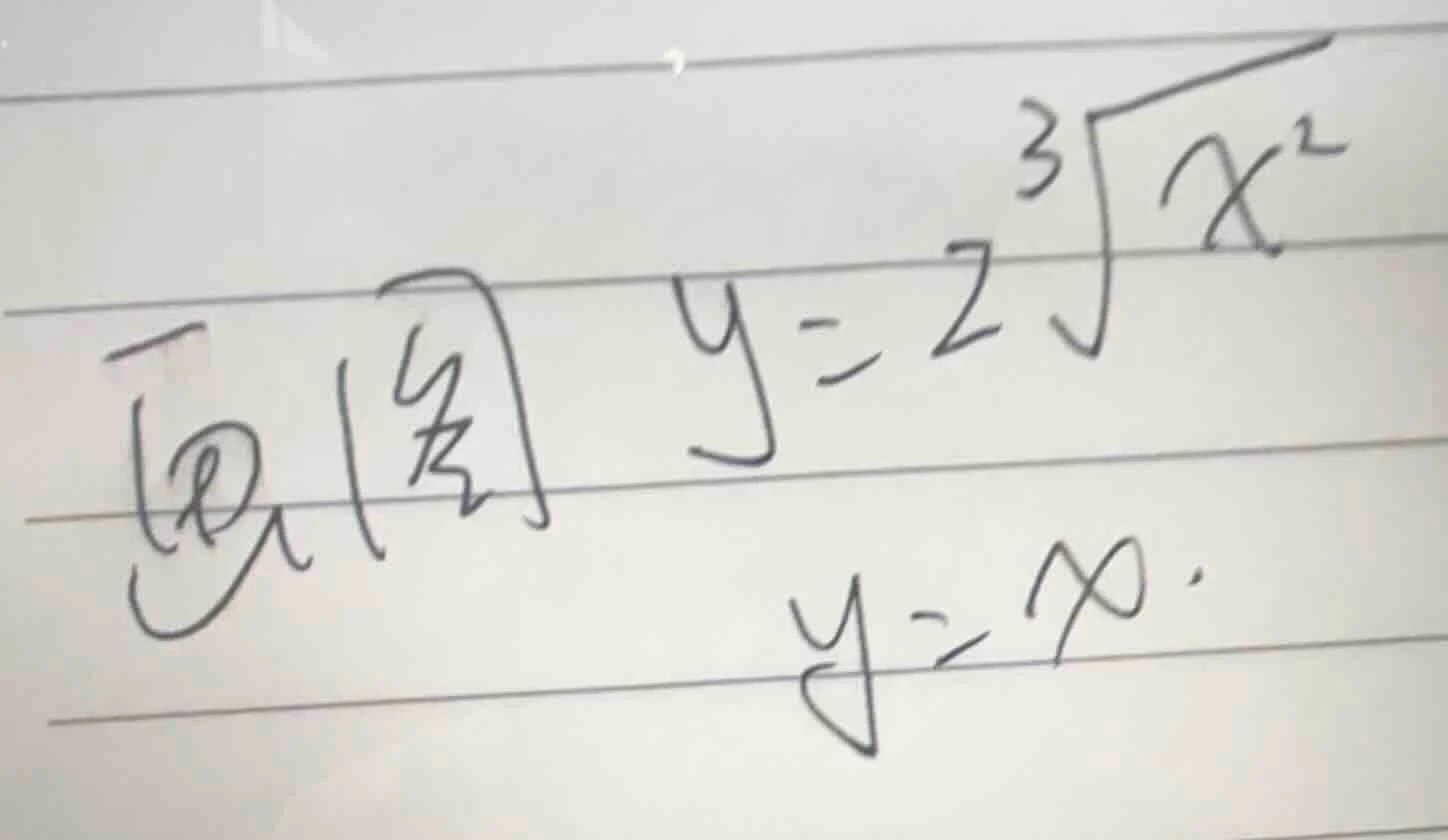 画图 y=2∛x²
y=x.